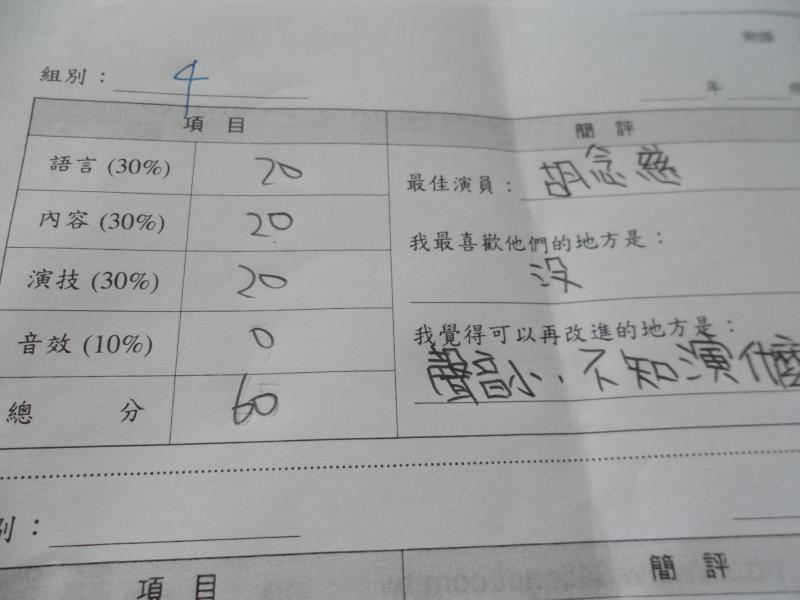 組別： 4
年
項 目 簡 評
語言 (30%) 20 最佳演員： 胡念慈
內容 (30%) 20 我最喜歡他們的地方是：
演技 (30%) 20 沒
音效 (10%) 0 我覺得可以再改進的地方是：
總 分 60 聲音小、不知演什麼
別：
項 目 簡 評